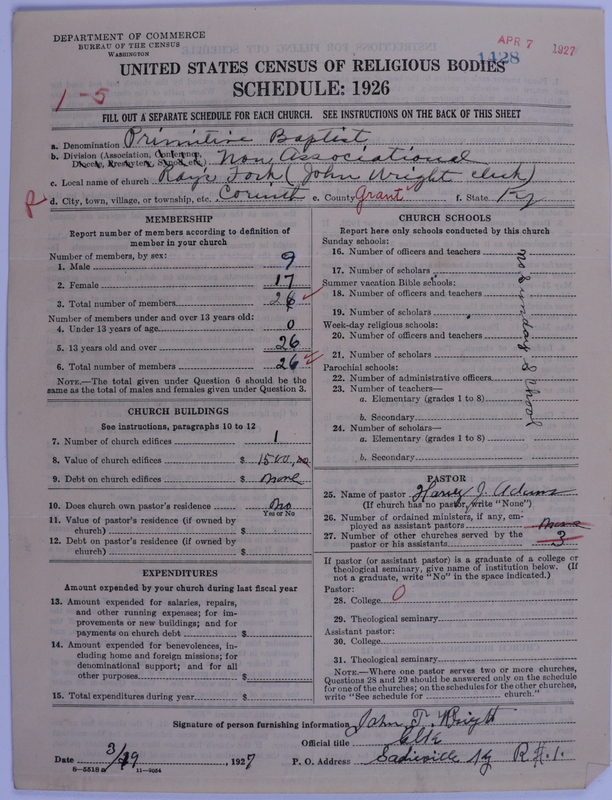 DEPARTMENT OF COMMERCE
BUREAU OF THE CENSUS
WASHINGTON
APR 7 1927
1128
UNITED STATES CENSUS OF RELIGIOUS BODIES
SCHEDULE: 1926
1-5
FILL OUT A SEPARATE SCHEDULE FOR EACH CHURCH. SEE INSTRUCTIONS ON THE BACK OF THIS SHEET
a. Denomination Primitive Baptist
b. Division (Association, Conference, Diocese, Presbytery, Synod, etc.) Non Associational
c. Local name of church Rays Fork (John Wright clerk)
R d. City, town, village, or township, etc. Corinth e. County Grant f. State Ky
MEMBERSHIP
Report number of members according to definition of
member in your church
Number of members, by sex:
1. Male 9
2. Female 17
3. Total number of members 26
Number of members under and over 13 years old:
4. Under 13 years of age 0
5. 13 years old and over 26
6. Total number of members 26
NOTE.—The total given under Question 6 should be the
same as the total of males and females given under Question 3.
CHURCH BUILDINGS
See instructions, paragraphs 10 to 12
7. Number of church edifices 1
8. Value of church edifices $ 1500,00
9. Debt on church edifices $ none
10. Does church own pastor's residence No
Yes or No
11. Value of pastor's residence (if owned by
church) $
12. Debt on pastor's residence (if owned by
church) $
EXPENDITURES
Amount expended by your church during last fiscal year
13. Amount expended for salaries, repairs,
and other running expenses; for im-
provements or new buildings; and for
payments on church debt $
14. Amount expended for benevolences, in-
cluding home and foreign missions; for
denominational support; and for all
other purposes $
15. Total expenditures during year $
CHURCH SCHOOLS
Report here only schools conducted by this church
Sunday schools:
16. Number of officers and teachers
17. Number of scholars
Summer vacation Bible schools:
18. Number of officers and teachers
19. Number of scholars
Week-day religious schools:
20. Number of officers and teachers
21. Number of scholars
Parochial schools:
22. Number of administrative officers
23. Number of teachers—
a. Elementary (grades 1 to 8)
b. Secondary
24. Number of scholars—
a. Elementary (grades 1 to 8)
b. Secondary
no Sunday School
PASTOR
25. Name of pastor Harvy J. Adams
(If church has no pastor, write "None")
26. Number of ordained ministers, if any, em-
ployed as assistant pastors None
27. Number of other churches served by the
pastor or his assistants 3
If pastor (or assistant pastor) is a graduate of a college or
theological seminary, give name of institution below. (If
not a graduate, write "No" in the space indicated.)
Pastor:
28. College 0
29. Theological seminary
Assistant pastor:
30. College
31. Theological seminary
NOTE.—Where one pastor serves two or more churches,
Questions 28 and 29 should be answered only on the schedule
for one of the churches; on the schedules for the other churches,
write "See schedule for church."
Signature of person furnishing information John T. Wright
Official title Clk
Date 3/29, 1927 P. O. Address Sadieville Ky R.#.1.
8-5518 a 11-9054